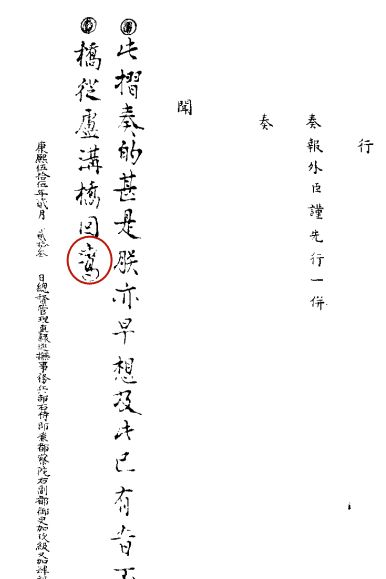 行
奏報外臣謹先行一併
奏
聞
此摺奏的甚是朕亦早想及此已有旨不
橋從盧溝橋回鑾
康熙伍拾伍年貳月 貳拾叁 日總督管理直隸巡撫事務兵部右侍郎兼都察院右副都御史加玖級又加肆